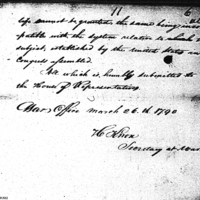 11 6
life cannot be granted the same being
patible with the system relative to which
subject established by the united States in
Congress assembled.
All which is humbly submitted to
the House of Representatives
War Office march 26.th 1790
H Knox
Secretary at War